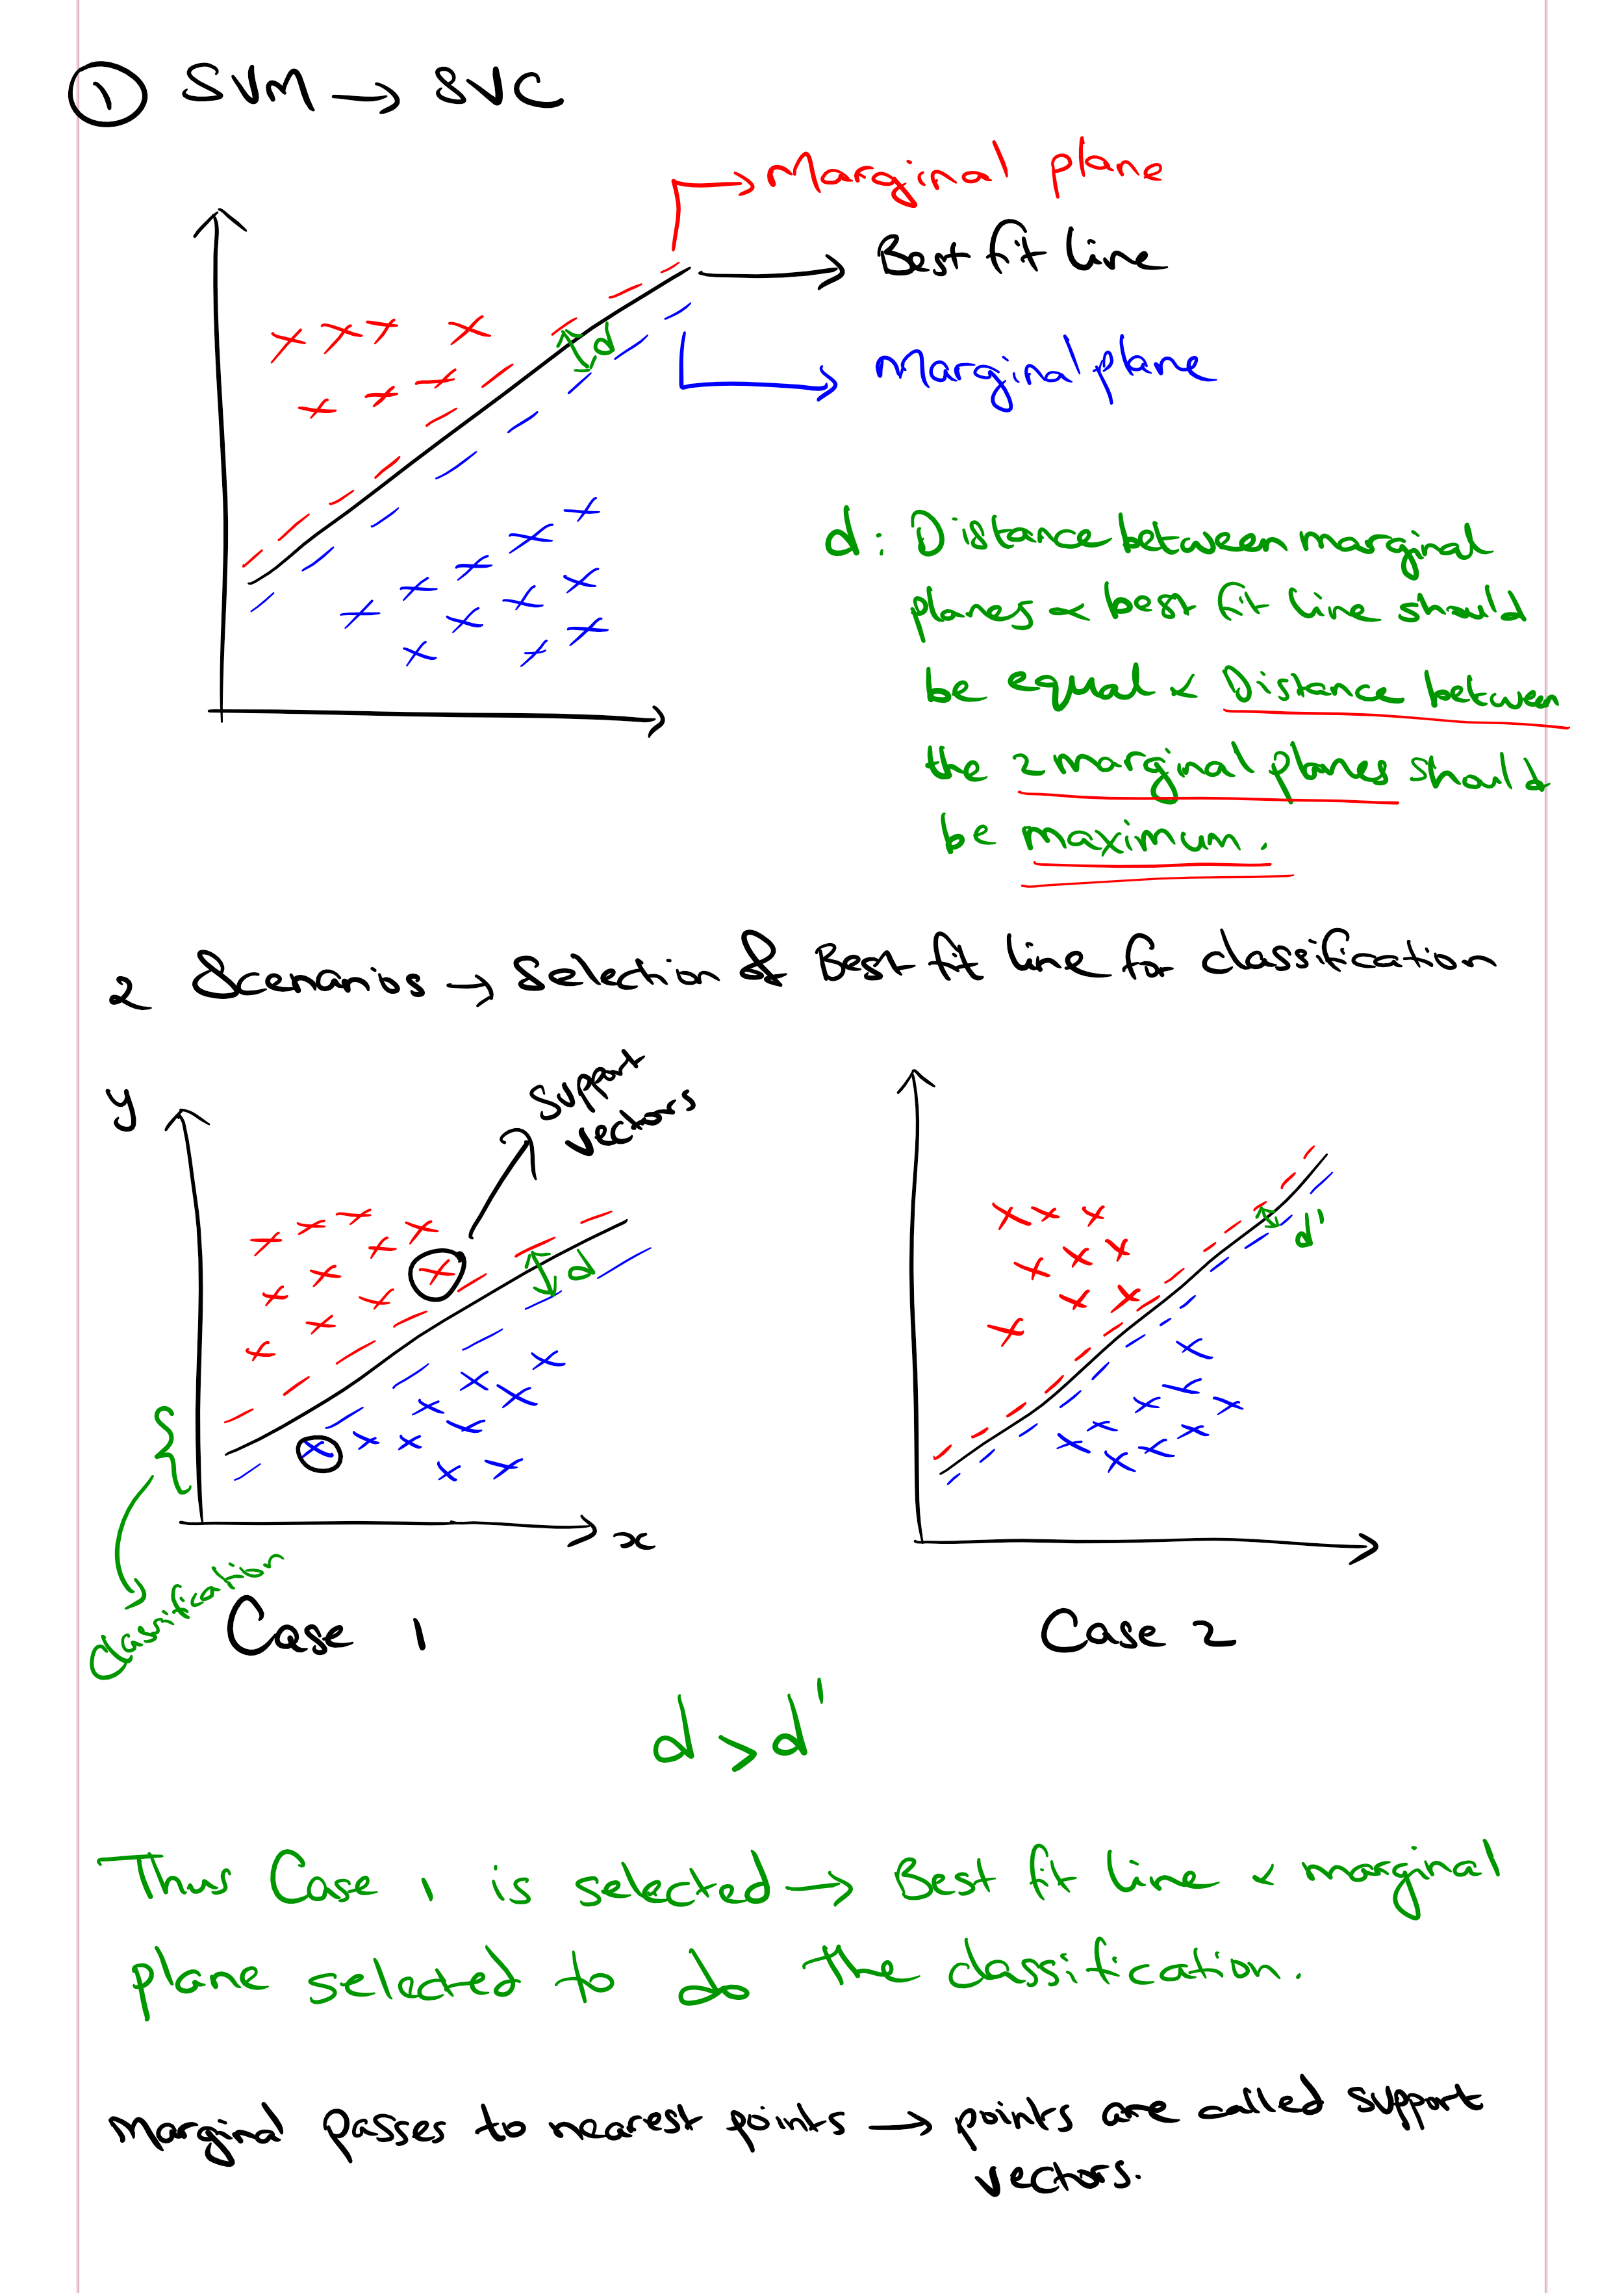 ① SVM → SVC
Marginal plane
Best fit line
Marginal plane
d
d: Distance between marginal
planes & best fit line should
be equal & Distance between
the 2 marginal planes should
be maximum.
2 Scenarios → Selection of Best fit line for classification
y
Support
vectors
d
d'
x
classification
Case 1
Case 2
d > d'
Thus Case 1 is selected → Best fit line & marginal
plane selected to do the classification.
Marginal passes to nearest points → points are called support
vectors.